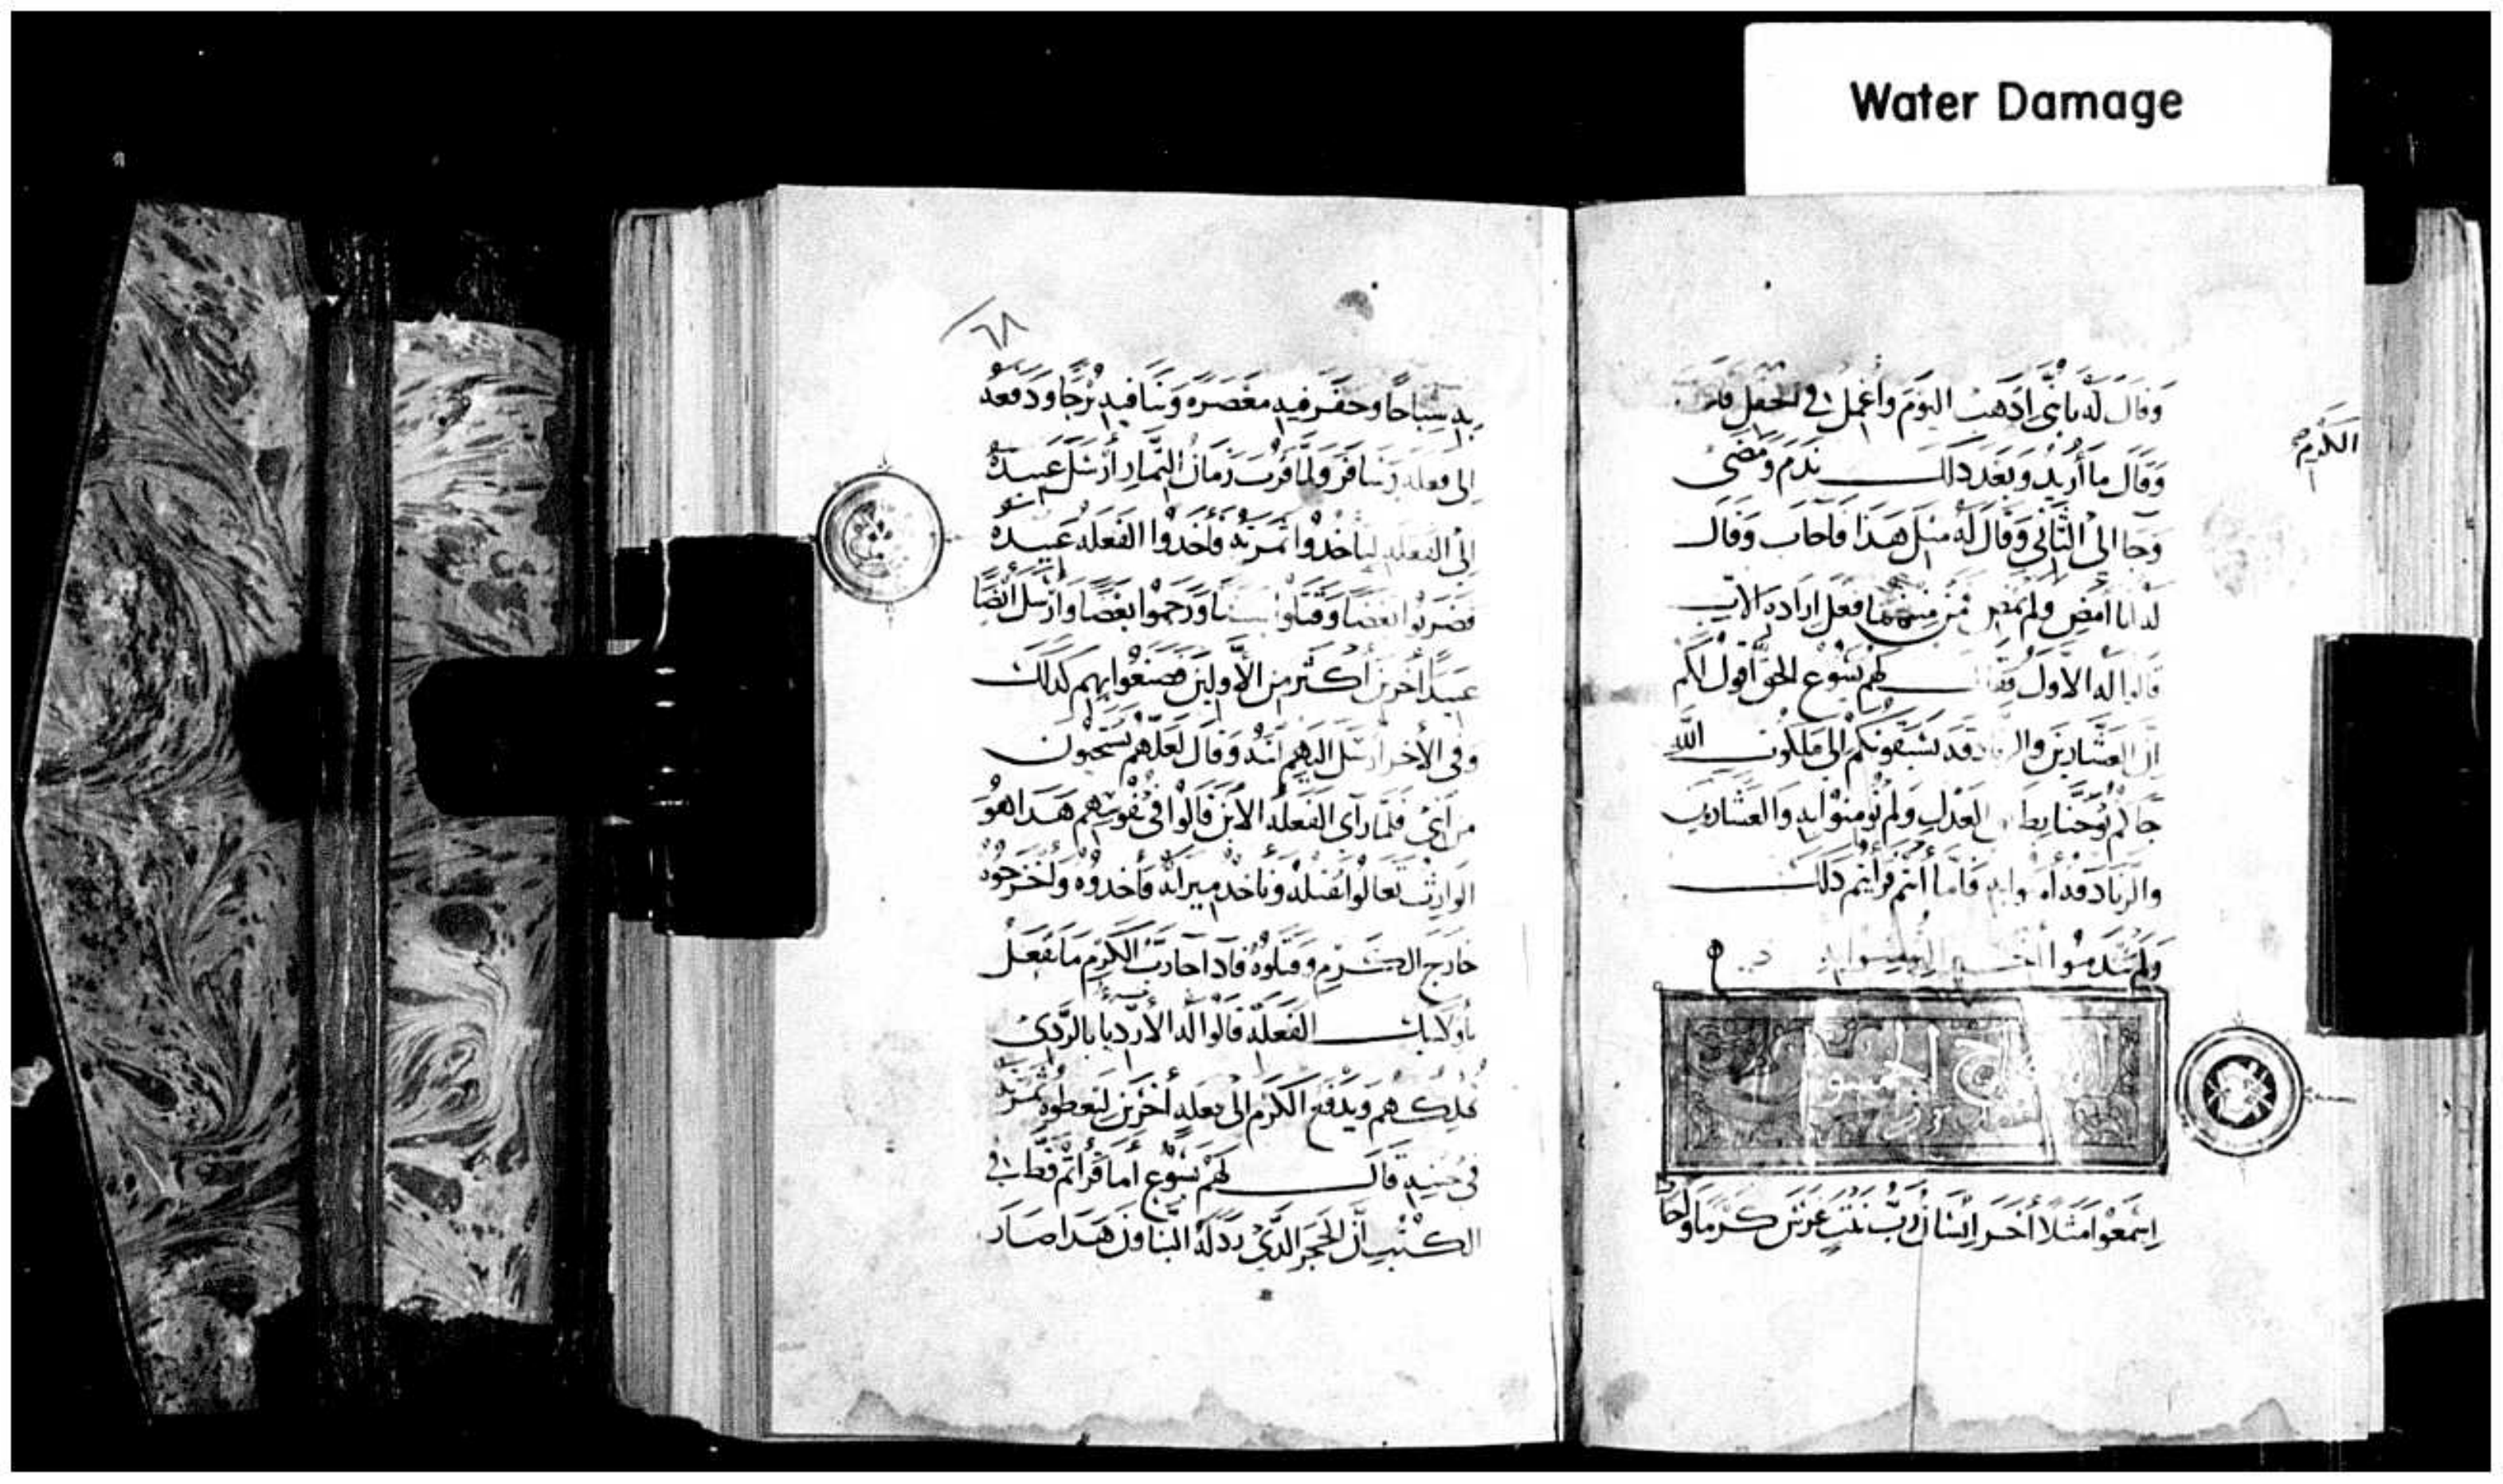 Water Damage
وقال له يا بني اذهب اليوم واعمل في الحقل
الكرم
وقال ما أريد وبعد ذلك ندم ومضى
وجا الى الثاني وقال له مثل هذا فاجاب وقال
له انا أمضي ولم يمض فمن منهما فعل ارادة الاب
قالوا له الاول فقال لهم يسوع الحق اقول لكم
ان العشارين والزناة قد تسبقونكم الى ملكوت الله
جاكم يوحنا بطريق العدل ولم تومنوا به والعشارين
والزناة قد أمنوا به فاما أنتم فرأيتم ذلك
ولم تندموا
اسمعوا مثلا أخر انسان رب بيت غرس كرما واحاط
٦٨
به سياحا وحفر فيه معصره وبنا فيه برجا ودفعه
الى فعله وسافر ولما قرب زمان الثمار أرسل عبيده
الى الفعله لياخذوا ثمرته فأخذوا الفعله عبيده
فضربوا بعضا وقتلوا بعضا ورجموا بعضا وارسل ايضا
عبيدا أخرين أكثر من الأولين فصنعوا بهم كذلك
وفي الأخر ارسل اليهم ابنه وقال لعلهم يستحيون
من ابني فلما رأى الفعله الابن قالوا في نفوسهم هذا هو
الوارث تعالوا نقتله وناخذ ميراثه فأخذوه وأخرجوه
خارج الكرم وقتلوه فاذا جا رب الكرم ما يفعل
بأوليك الفعله قالوا له الأرديا بالردي
يهلكهم ويدفع الكرم الى فعله أخرين ليعطوه ثمرته
في حينه قال لهم يسوع أما قرأتم قط في
الكتب أن الحجر الذي رذله البناون هذا صار